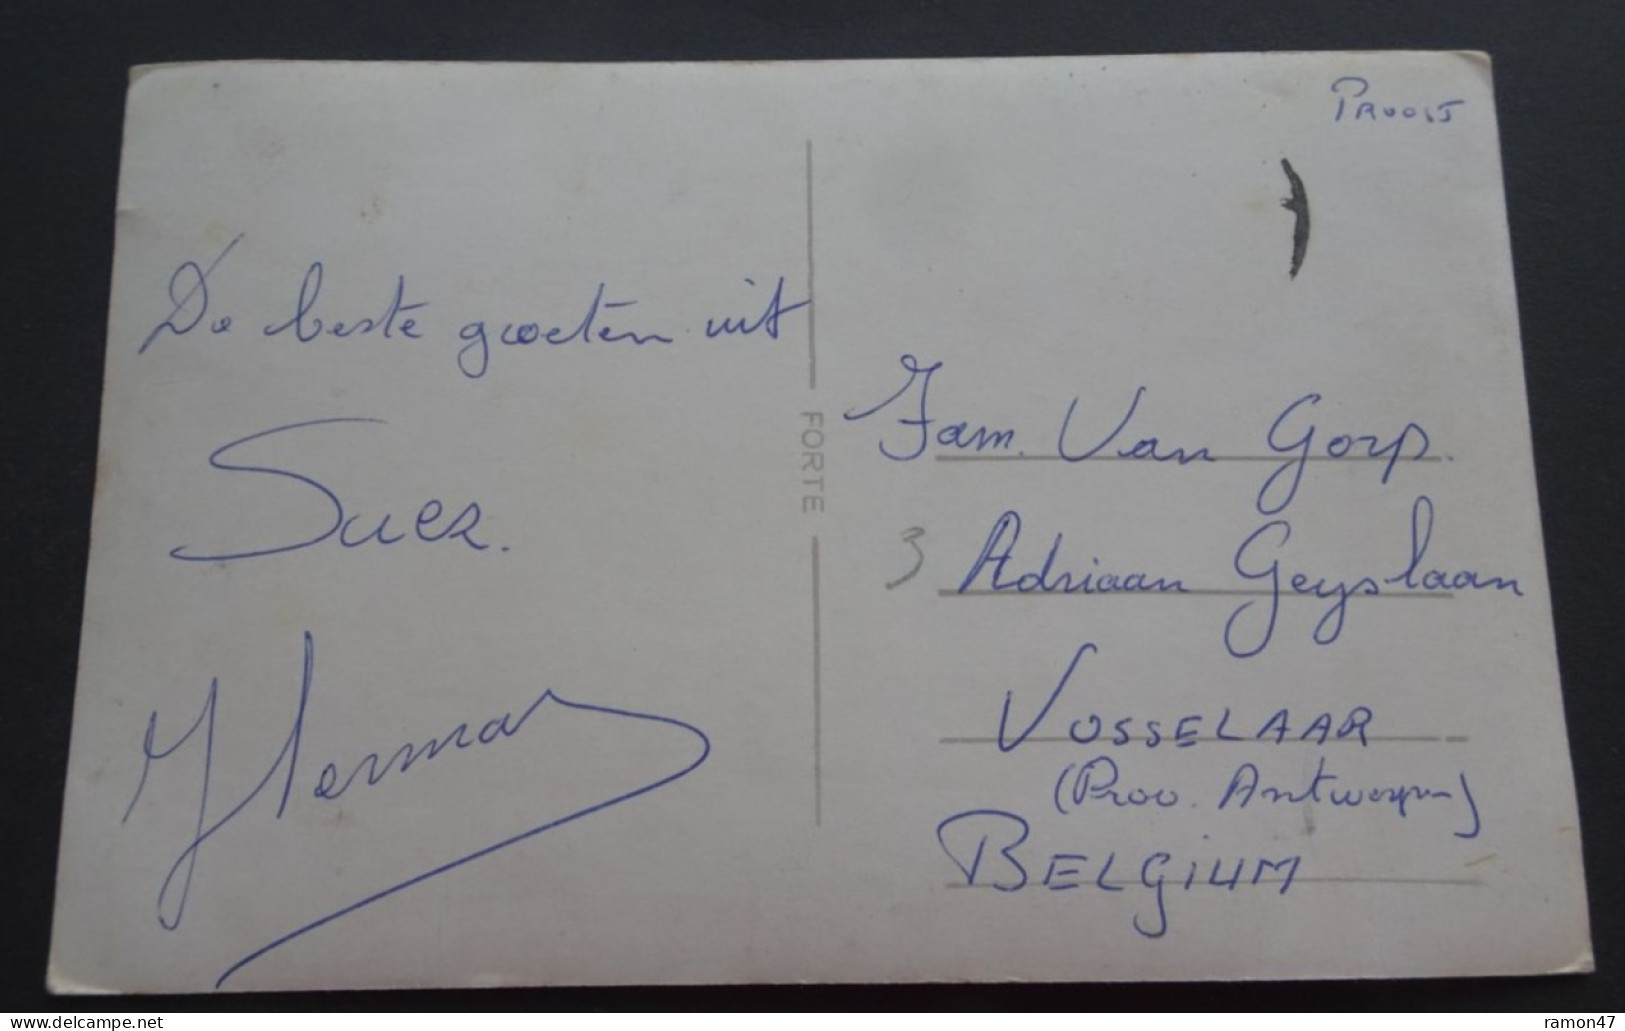 De beste groeten uit
Suez.
Herman
FORTE
PROOST
Fam. Van Gorp.
3 Adriaan Geyslaan
VOSSELAAR
(Prov. Antwerpen)
BELGIUM
ramon47